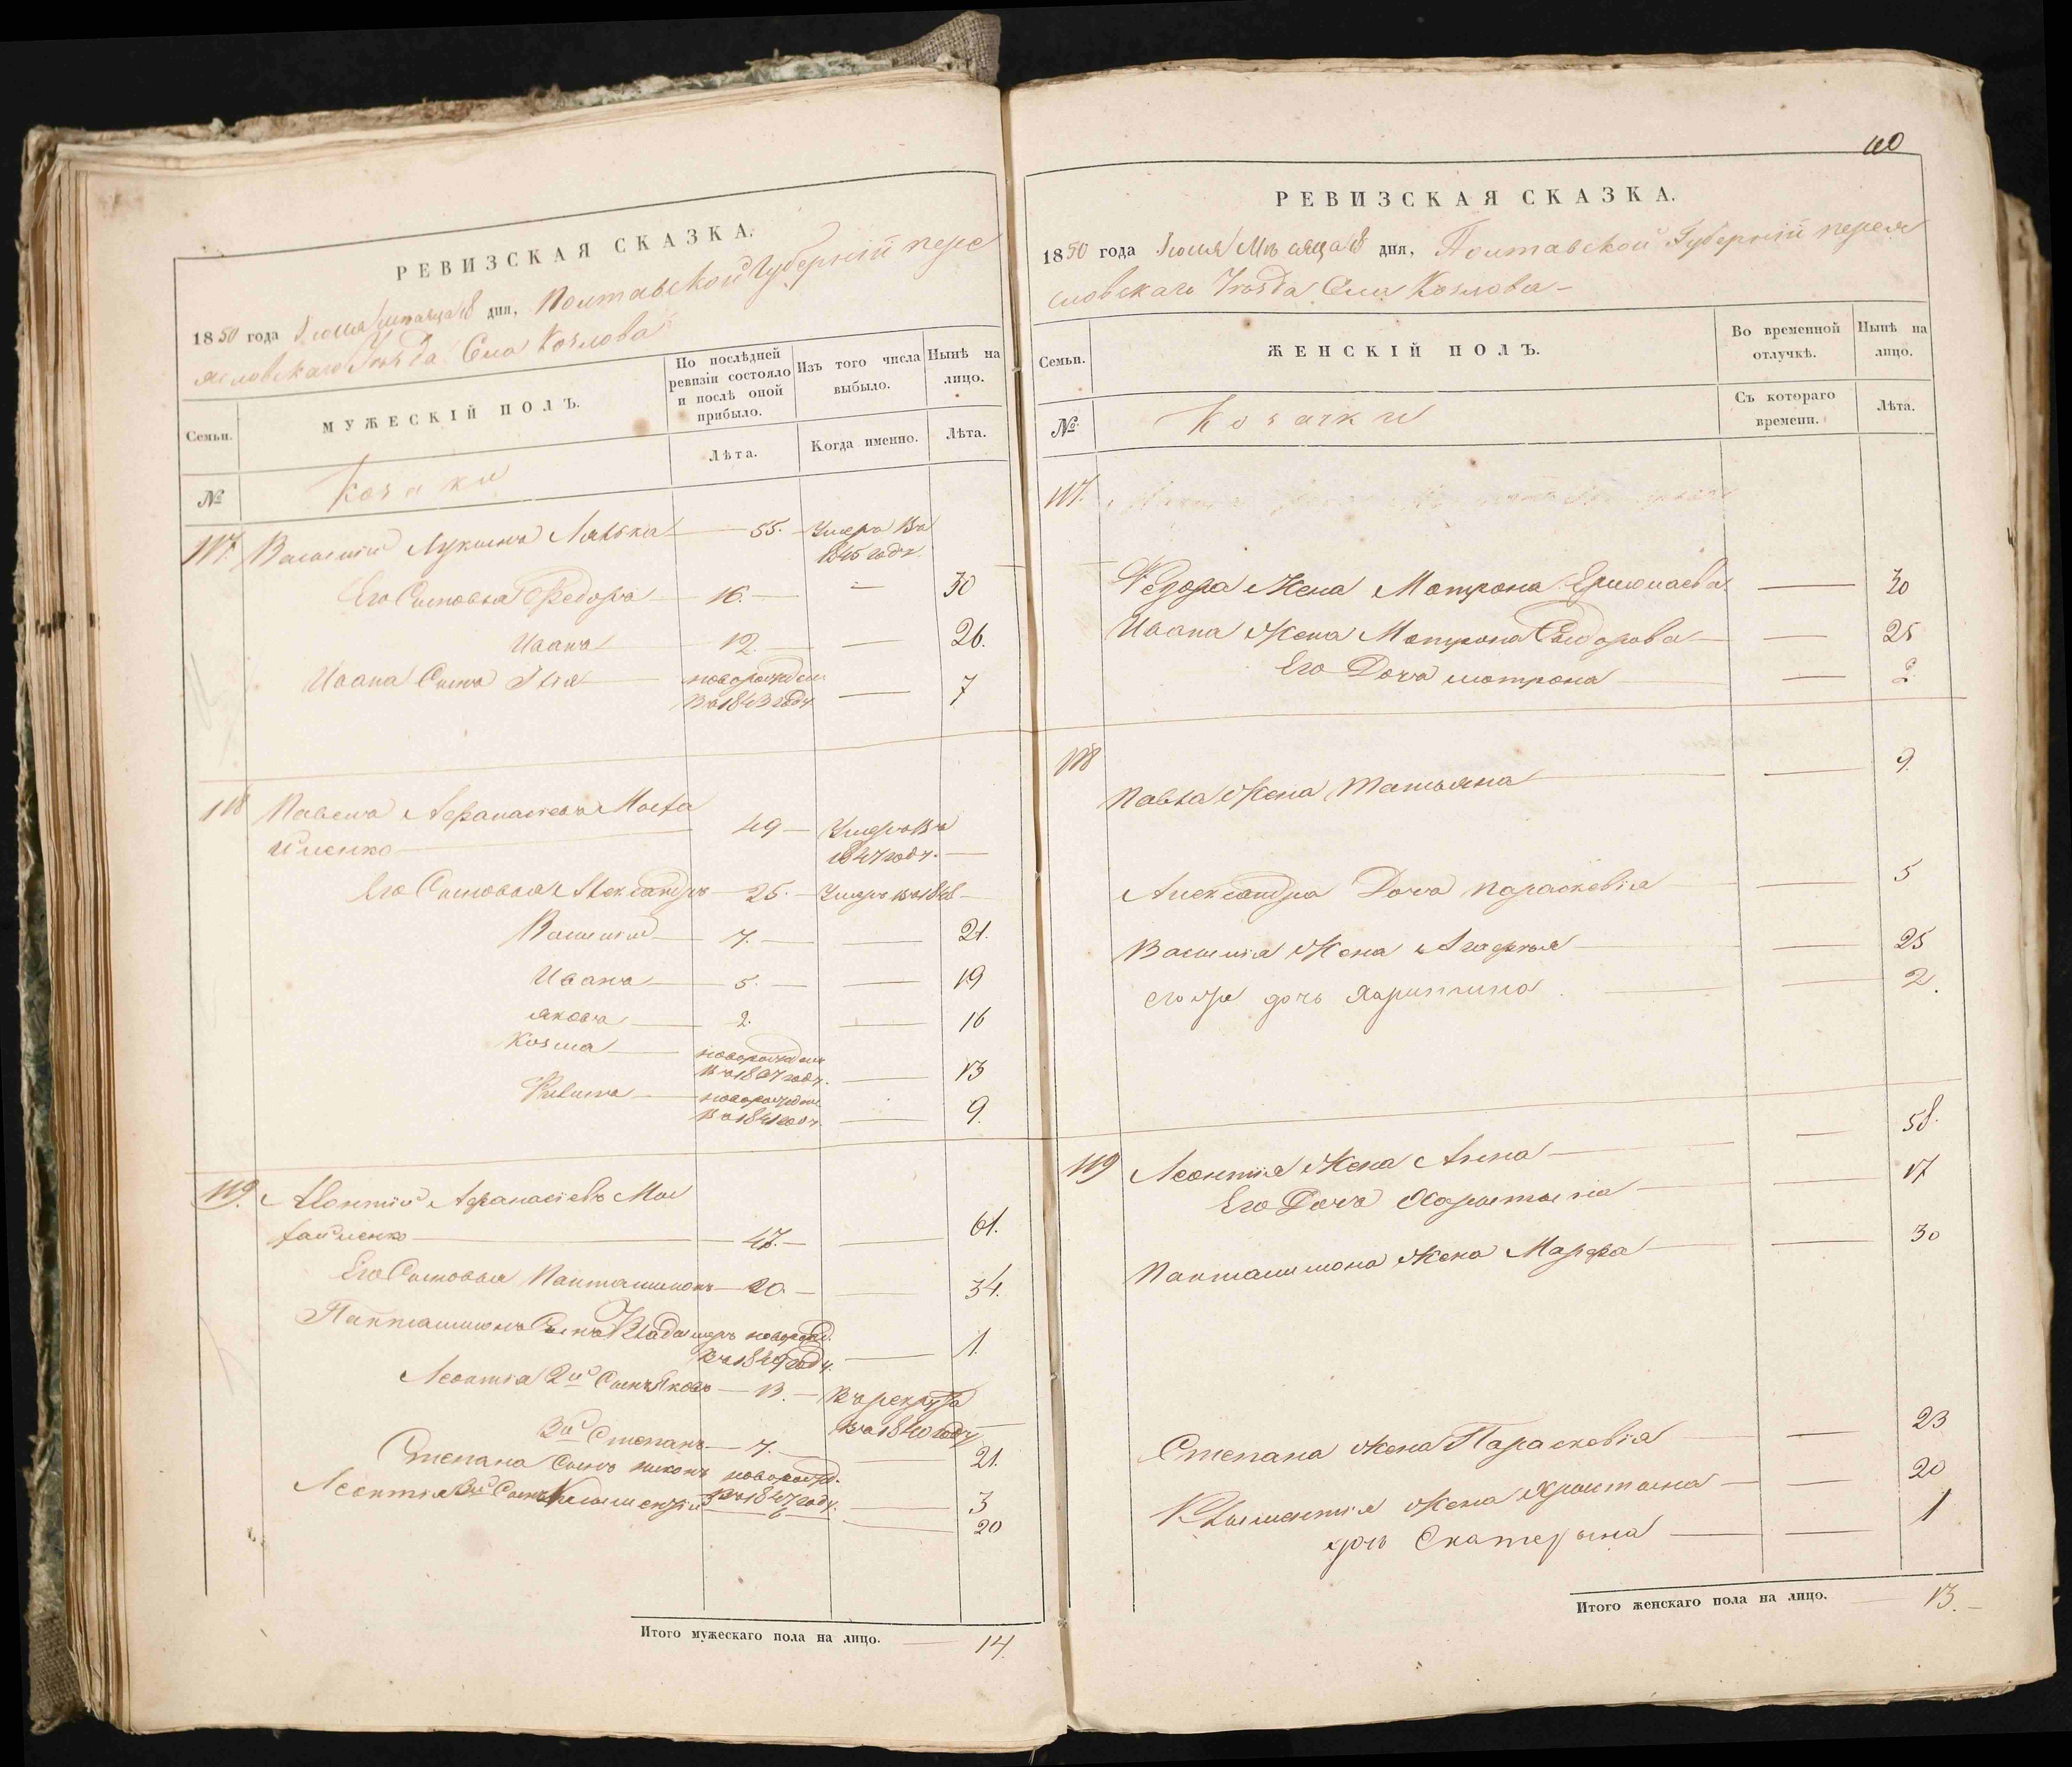 РЕВИЗСКАЯ СКАЗКА.
1850 года Іюля Мѣсяца 18 дня, Полтавской Губерніи пере
ясловскаго Уезда Села Козлова
Семьи.
МУЖЕСКІЙ ПОЛЪ.
По послѣдней ревизіи состояло и послѣ оной прибыло.
Изъ того числа выбыло.
Нынѣ на лицо.
№
Козаки
Лѣта.
Когда именно.
Лѣта.
117. Василий Лукинъ 55. Умеръ Въ
1845 годе.
Его Сыновья Федоръ 16. 30
Иванъ 12. 26.
Ивана Сынъ новорожден
Въ 1843 году 7
118 Павелъ Афанасіевъ Мога
иленко 49 Умеръ Въ
1847 году.
Его Сыновья Александръ 25. Умеръ въ 1848
Василий 7. 21.
Иванъ 5. 19
Яковъ 2. 16
Козма новорожден
Въ 1837 году. 13
новорожден
Въ 1841 году. 9.
119. Леонтий Афанасіевъ Мог
аиленко 47. 61.
Его Сыновья Пантелимонъ 20 34.
Пантелимона Сынъ Владимеръ новорожд.
Въ 1849 году. 1.
Леонтія 2й Сынъ Яковъ 13. Въ рекруты
въ 1840 году
3й Степанъ 7. 21.
Степана Сынъ никонъ новорожд.
Въ 1847 году. 3
Леонтія Сынъ Климентий 6 20
Итого мужескаго пола на лицо. 14.
60
РЕВИЗСКАЯ СКАЗКА.
1850 года Іюля Мѣсяца 18 дня, Полтавской Губерніи перея
словскаго Уезда Села Козлова
Семьи.
ЖЕНСКІЙ ПОЛЪ.
Во временной отлучкѣ.
Нынѣ на лицо.
№
Козачки
Съ котораго времени.
Лѣта.
117.
Федора Жена Мотрона 30
Ивана Жена Мотрона Сидорова 25
Его Дочь мотрона 2
118
Павла Жена Татьяна 9.
Александра Дочь параскевія 5
Василія Жена Агафія 25
его же дочь Харитина 2.
119 Леонтія Жена Анна 58.
Его Дочь Харитина 17
Пантелимона Жена Марфа 30
Степана Жена Параскевія 23
Климентія Жена Христина 20
дочь Екатерина 1
Итого женскаго пола на лицо. 13.